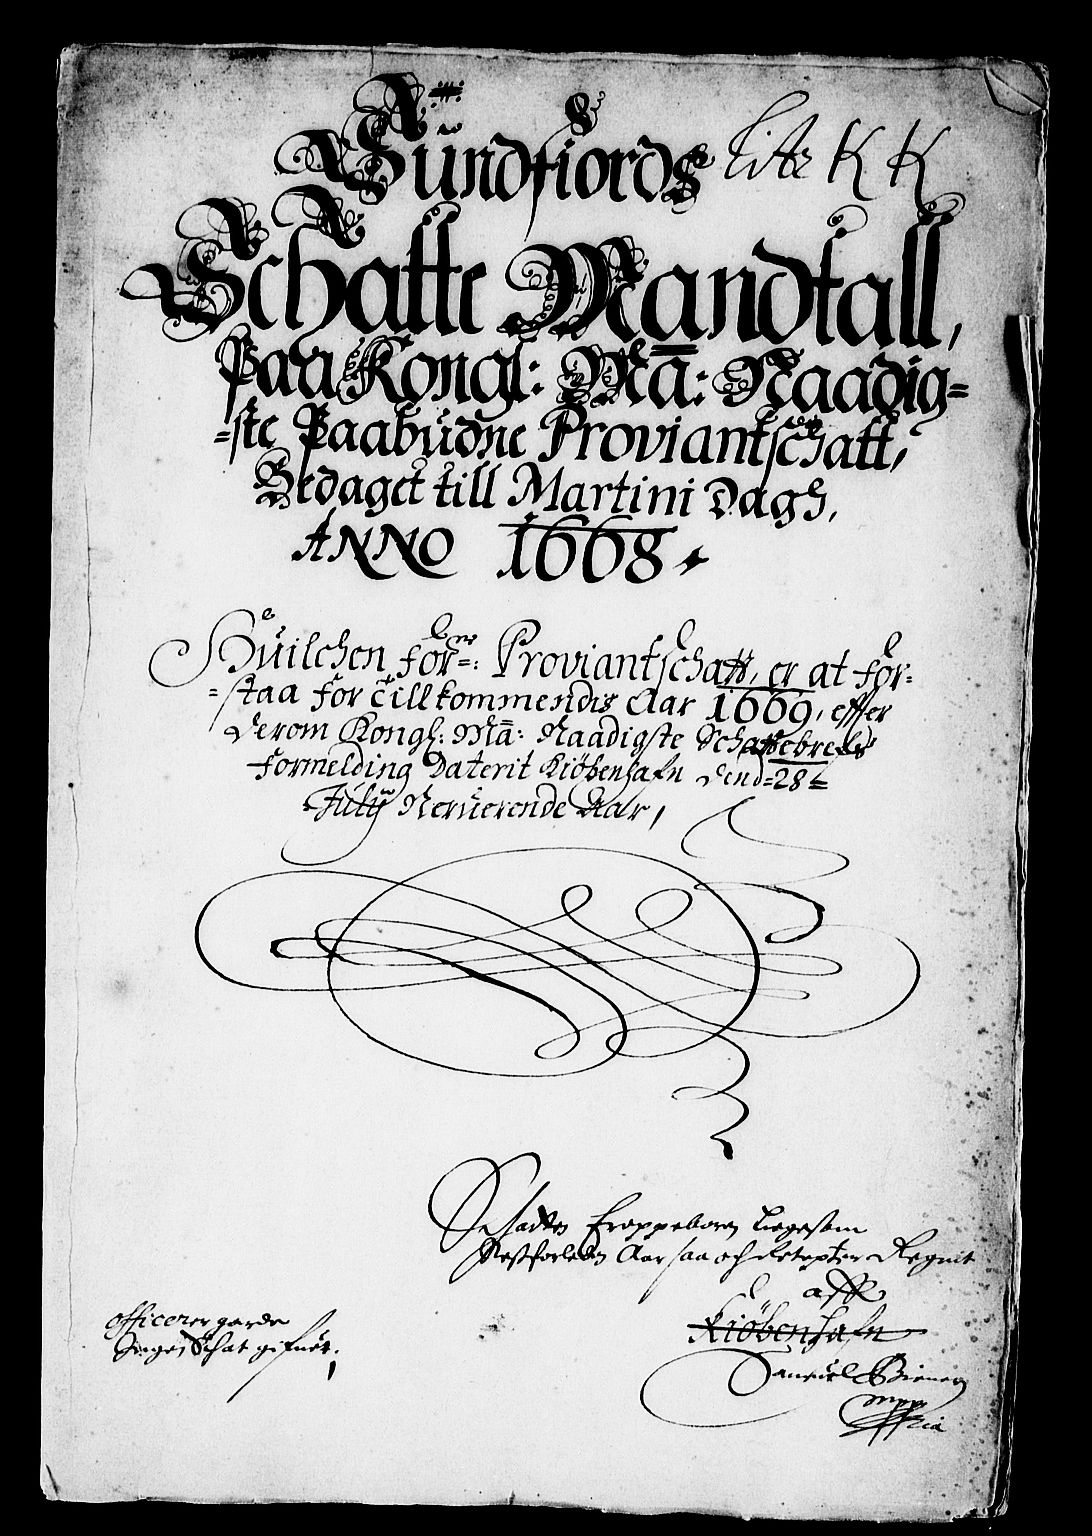 Sündfiords Litr K K
Schatte Mandtall,
Paa Kongl: Ma: Naadig=
=ste Paabudne Proviantschatt,
Bedaget till Martini Dagh,
ANNO 1668.
Huilchen for: Proviantschatt, er at for=
=staa for Tillkommendis Aar 1669, effter
derom Kongl: Ma: Naadigste Schattebrefs
Formelding Daterit Kiöbenhafn dend=28=
July Neruerende Aar,
Schatten Ligesom
Nestforleden Aar saa och
aff
Kiöbenhafn
officerer garde
Schat gifuet.
Samuel
mpp
ria